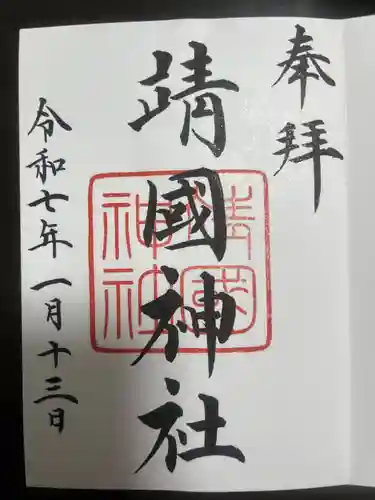 奉拝
靖國神社
靖国神社
令和七年一月十三日